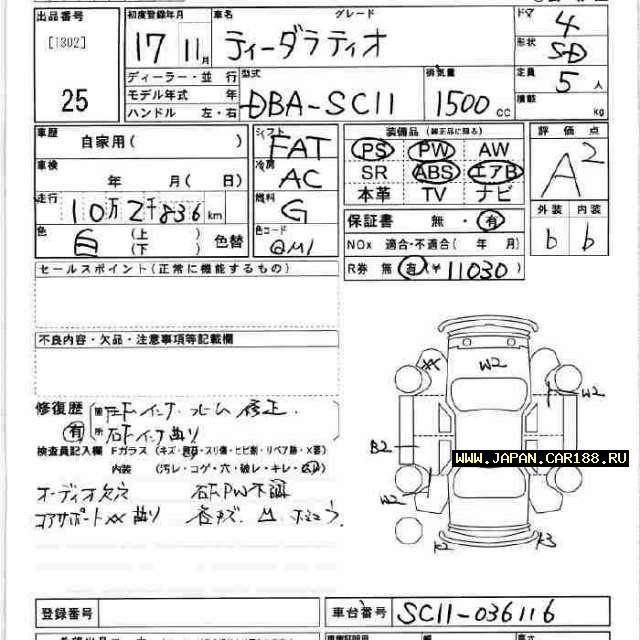 出品番号 初度登録年月 車名 グレード ドア 4
[1302] 17 11月 ティーダラティオ 形状 SD
25 ディーラー・並行 型式 排気量 定員 5人
モデル年式 年 DBA-SC11 1500cc 積載 kg
ハンドル 左・右
車歴 自家用( ) シフト FAT 装備品 (純正品に限る) 評価点
車検 年 月( 日) 冷房 AC PS PW AW A2
SR ABS エアB
走行 10万2千836km 燃料 G 本革 TV ナビ 外装 内装
色 白 (上 ) (下 ) 色替 色コード QM1 保証書 無・有 b b
NOx 適合・不適合( 年 月)
R券 無 有(¥11030)
セールスポイント(正常に機能するもの)
不良内容・欠品・注意事項等記載欄
修復歴 有 箇所 修正
曲り
検査員記入欄 Fガラス (キズ・スリ傷・ヒビ割・リペア跡・X要)
内装 (汚レ・コゲ・穴・破レ・キレ・)
オーディオ欠穴 PW不調
コアサポートXX曲り
XX W2 W2
B2
W2
K2 K3
WWW.JAPAN.CAR188.RU
登録番号 車台番号 SC11-036116